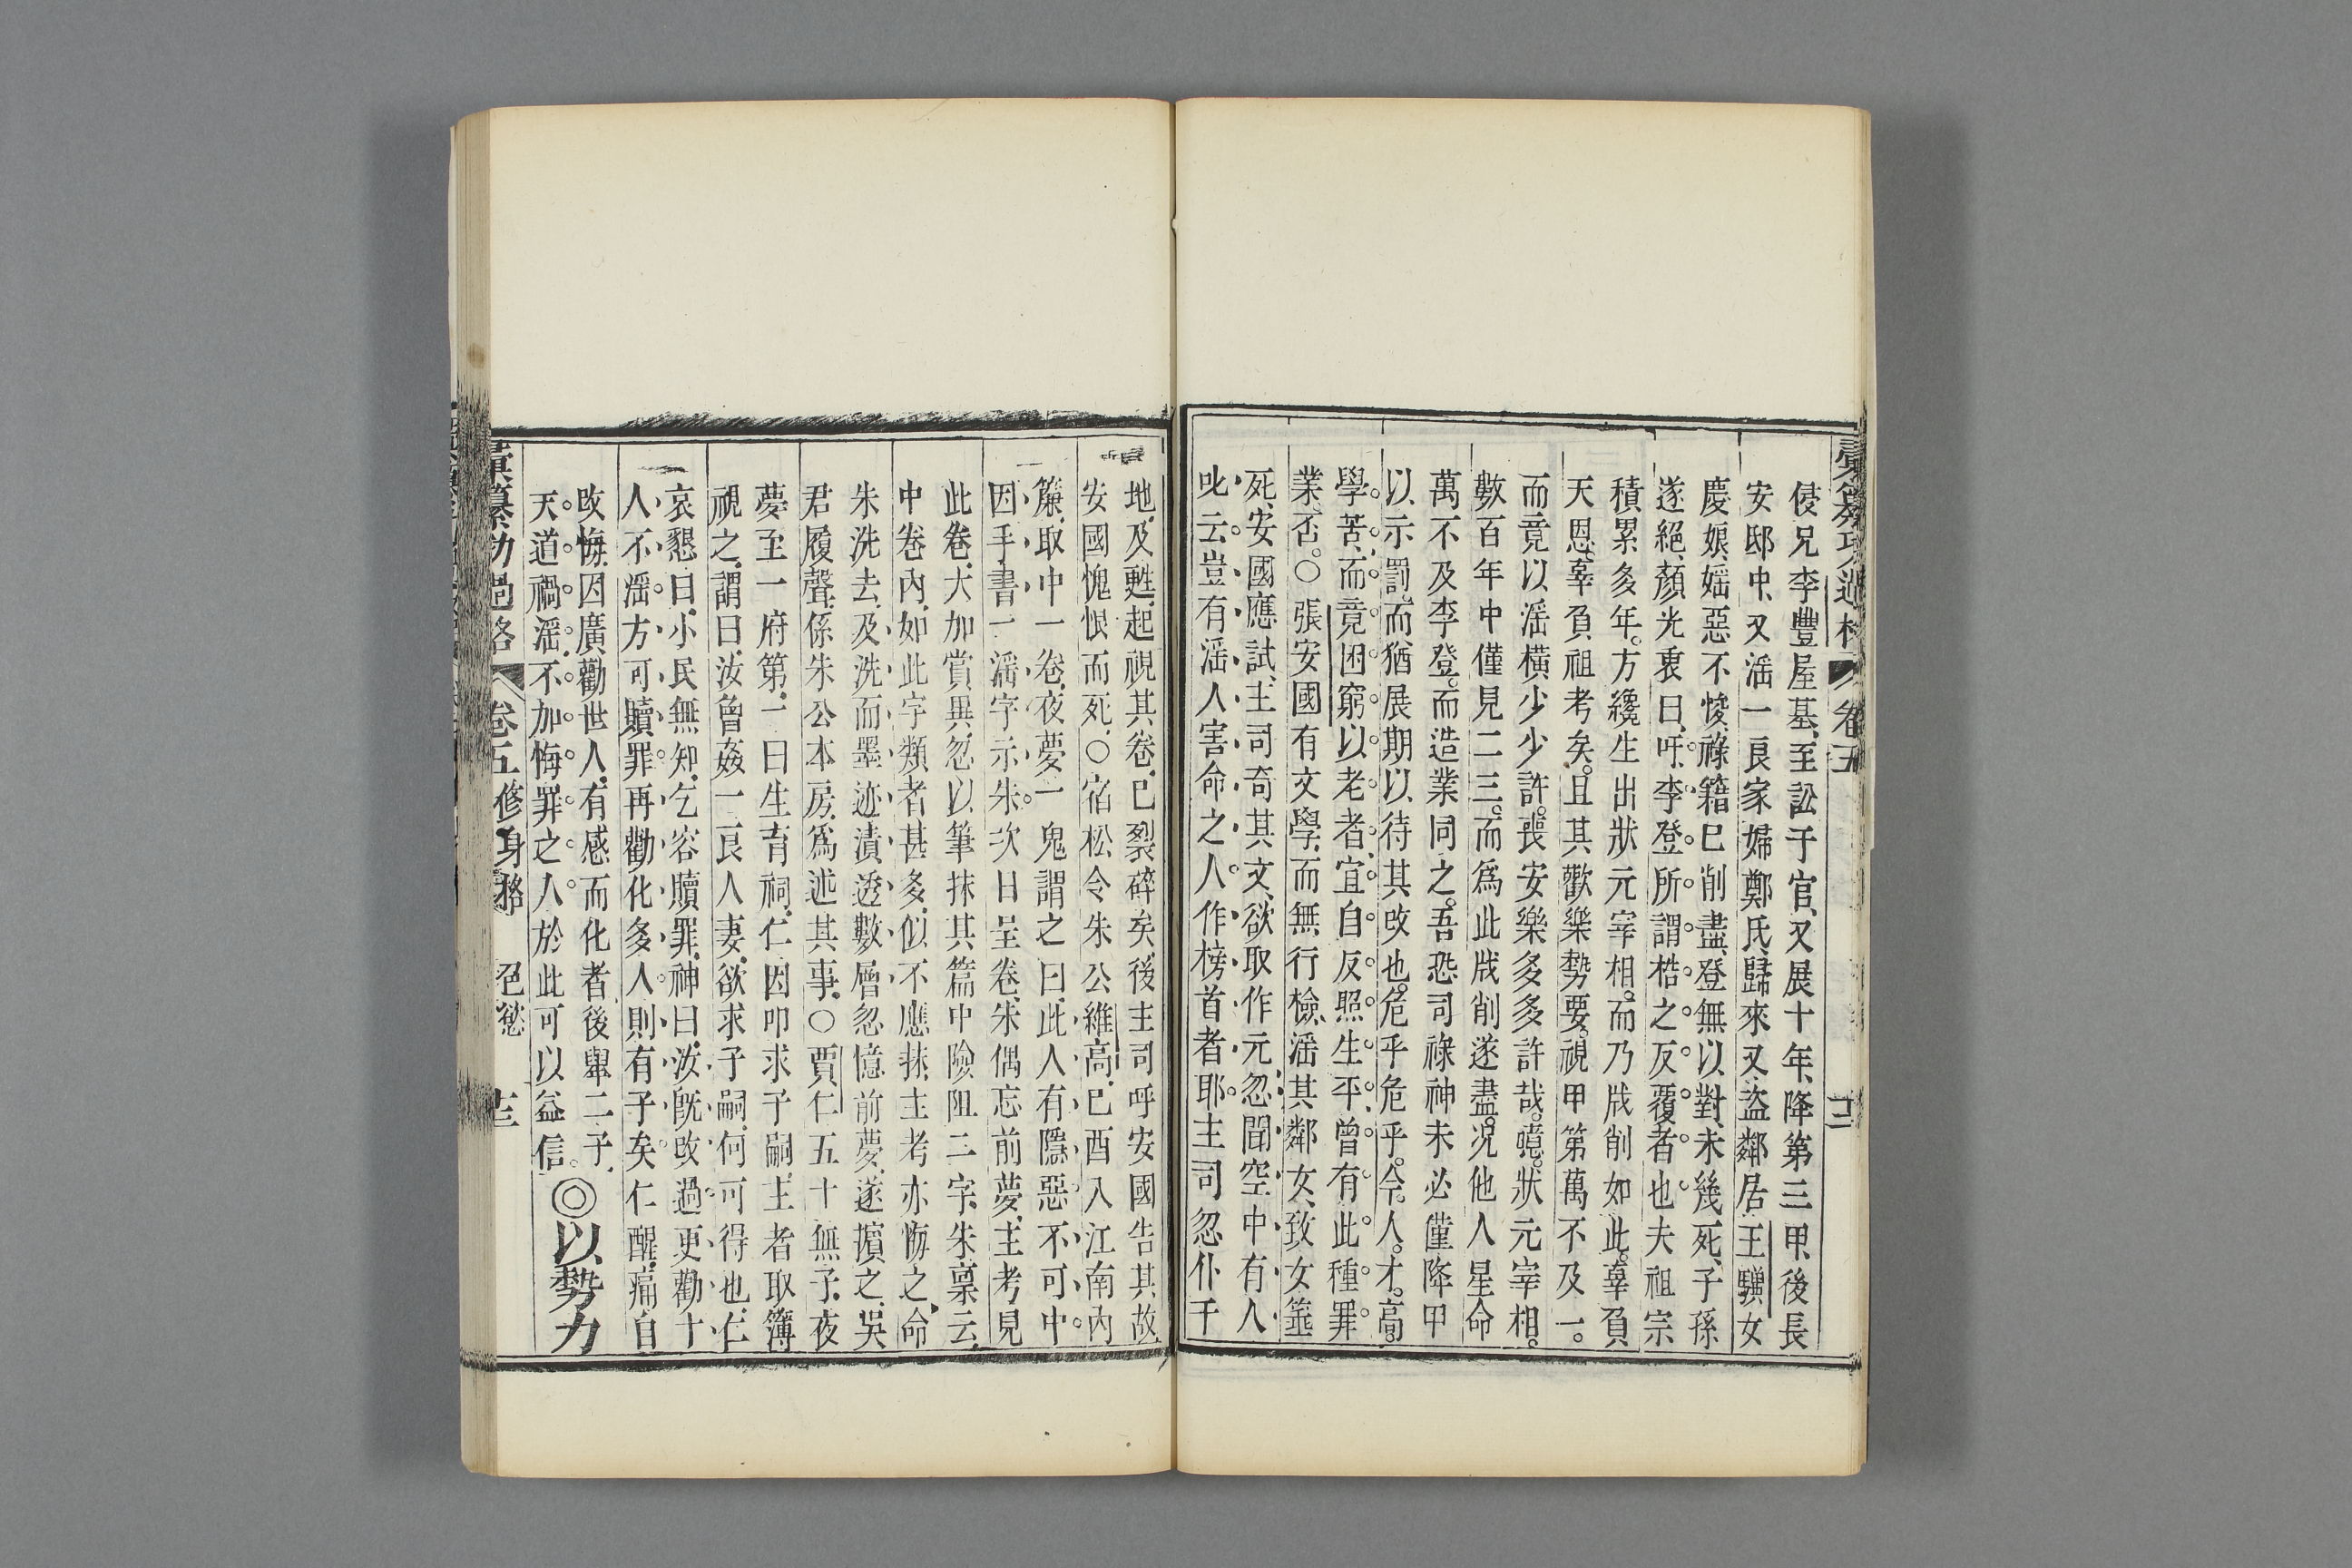 彚纂功過格 卷五
侵兄李豐屋基、至訟于官、又展十年、降第三甲、後長
安邸中、又滛一良家婦鄭氏、歸來又盜鄰居王驥女
慶娘、婬惡不悛、祿籍已削盡、登無以對、未幾死、子孫
遂絕、顏光衷曰、吁、李登所謂梏之反覆者也、夫祖宗
積累多年。方纔生出狀元宰相。而乃戕削如此。辜負
天恩。辜負祖考矣。且其歡樂勢要。視甲第萬不及一。
而竟以滛橫少少許。喪安樂多多許哉。噫。狀元宰相。
數百年中僅見二三。而爲此戕削遂盡。况他人星命
萬不及李登。而造業同之。吾恐司祿神未必僅降甲
以示罰。而猶展期以待其改也。危乎危乎。今人。才高。
學苦。而竟困窮以老者。宜自反照生平。曾有此種罪
業否。○張安國有文學、而無行檢、滛其鄰女、致女箠
死、安國應試、主司奇其文、欲取作元、忽聞空中有人
叱云、豈有滛人害命之人、作榜首者耶、主司忽仆于
地、及甦、起視其卷、已裂碎矣、後主司呼安國告其故
安國愧恨而死、○宿松令朱公維高、已酉入江南內
簾、取中一卷、夜夢一鬼謂之曰、此人有隱惡、不可中。
因手書一滛字示朱。次日呈卷、朱偶忘前夢、主考見
此卷、大加賞異、忽以筆抹其篇中險阻二字、朱稟云、
中卷內、如此字類者甚多、似不應抹、主考亦悔之、命
朱洗去、及洗而墨迹漬透數層、忽憶前夢、遂擯之、吳
君履聲、係朱公本房、爲述其事、○賈仁五十無子、夜
夢至一府第、一曰生育祠、仁因叩求子嗣、主者取簿
視之、謂曰、汝曾姦一良人妻、欲求子嗣、何可得也、仁
哀懇曰、小民無知、乞容贖罪、神曰、汝旣改過、更勸十
人不滛、方可贖罪、再勸化多人、則有子矣、仁醒、痛自
改悔、因廣勸世人、有感而化者、後舉二子、
天道禍滛。不加悔罪之人。於此可以益信。◎以勢力
彚纂功過格 卷五 修身格 色慾 十三